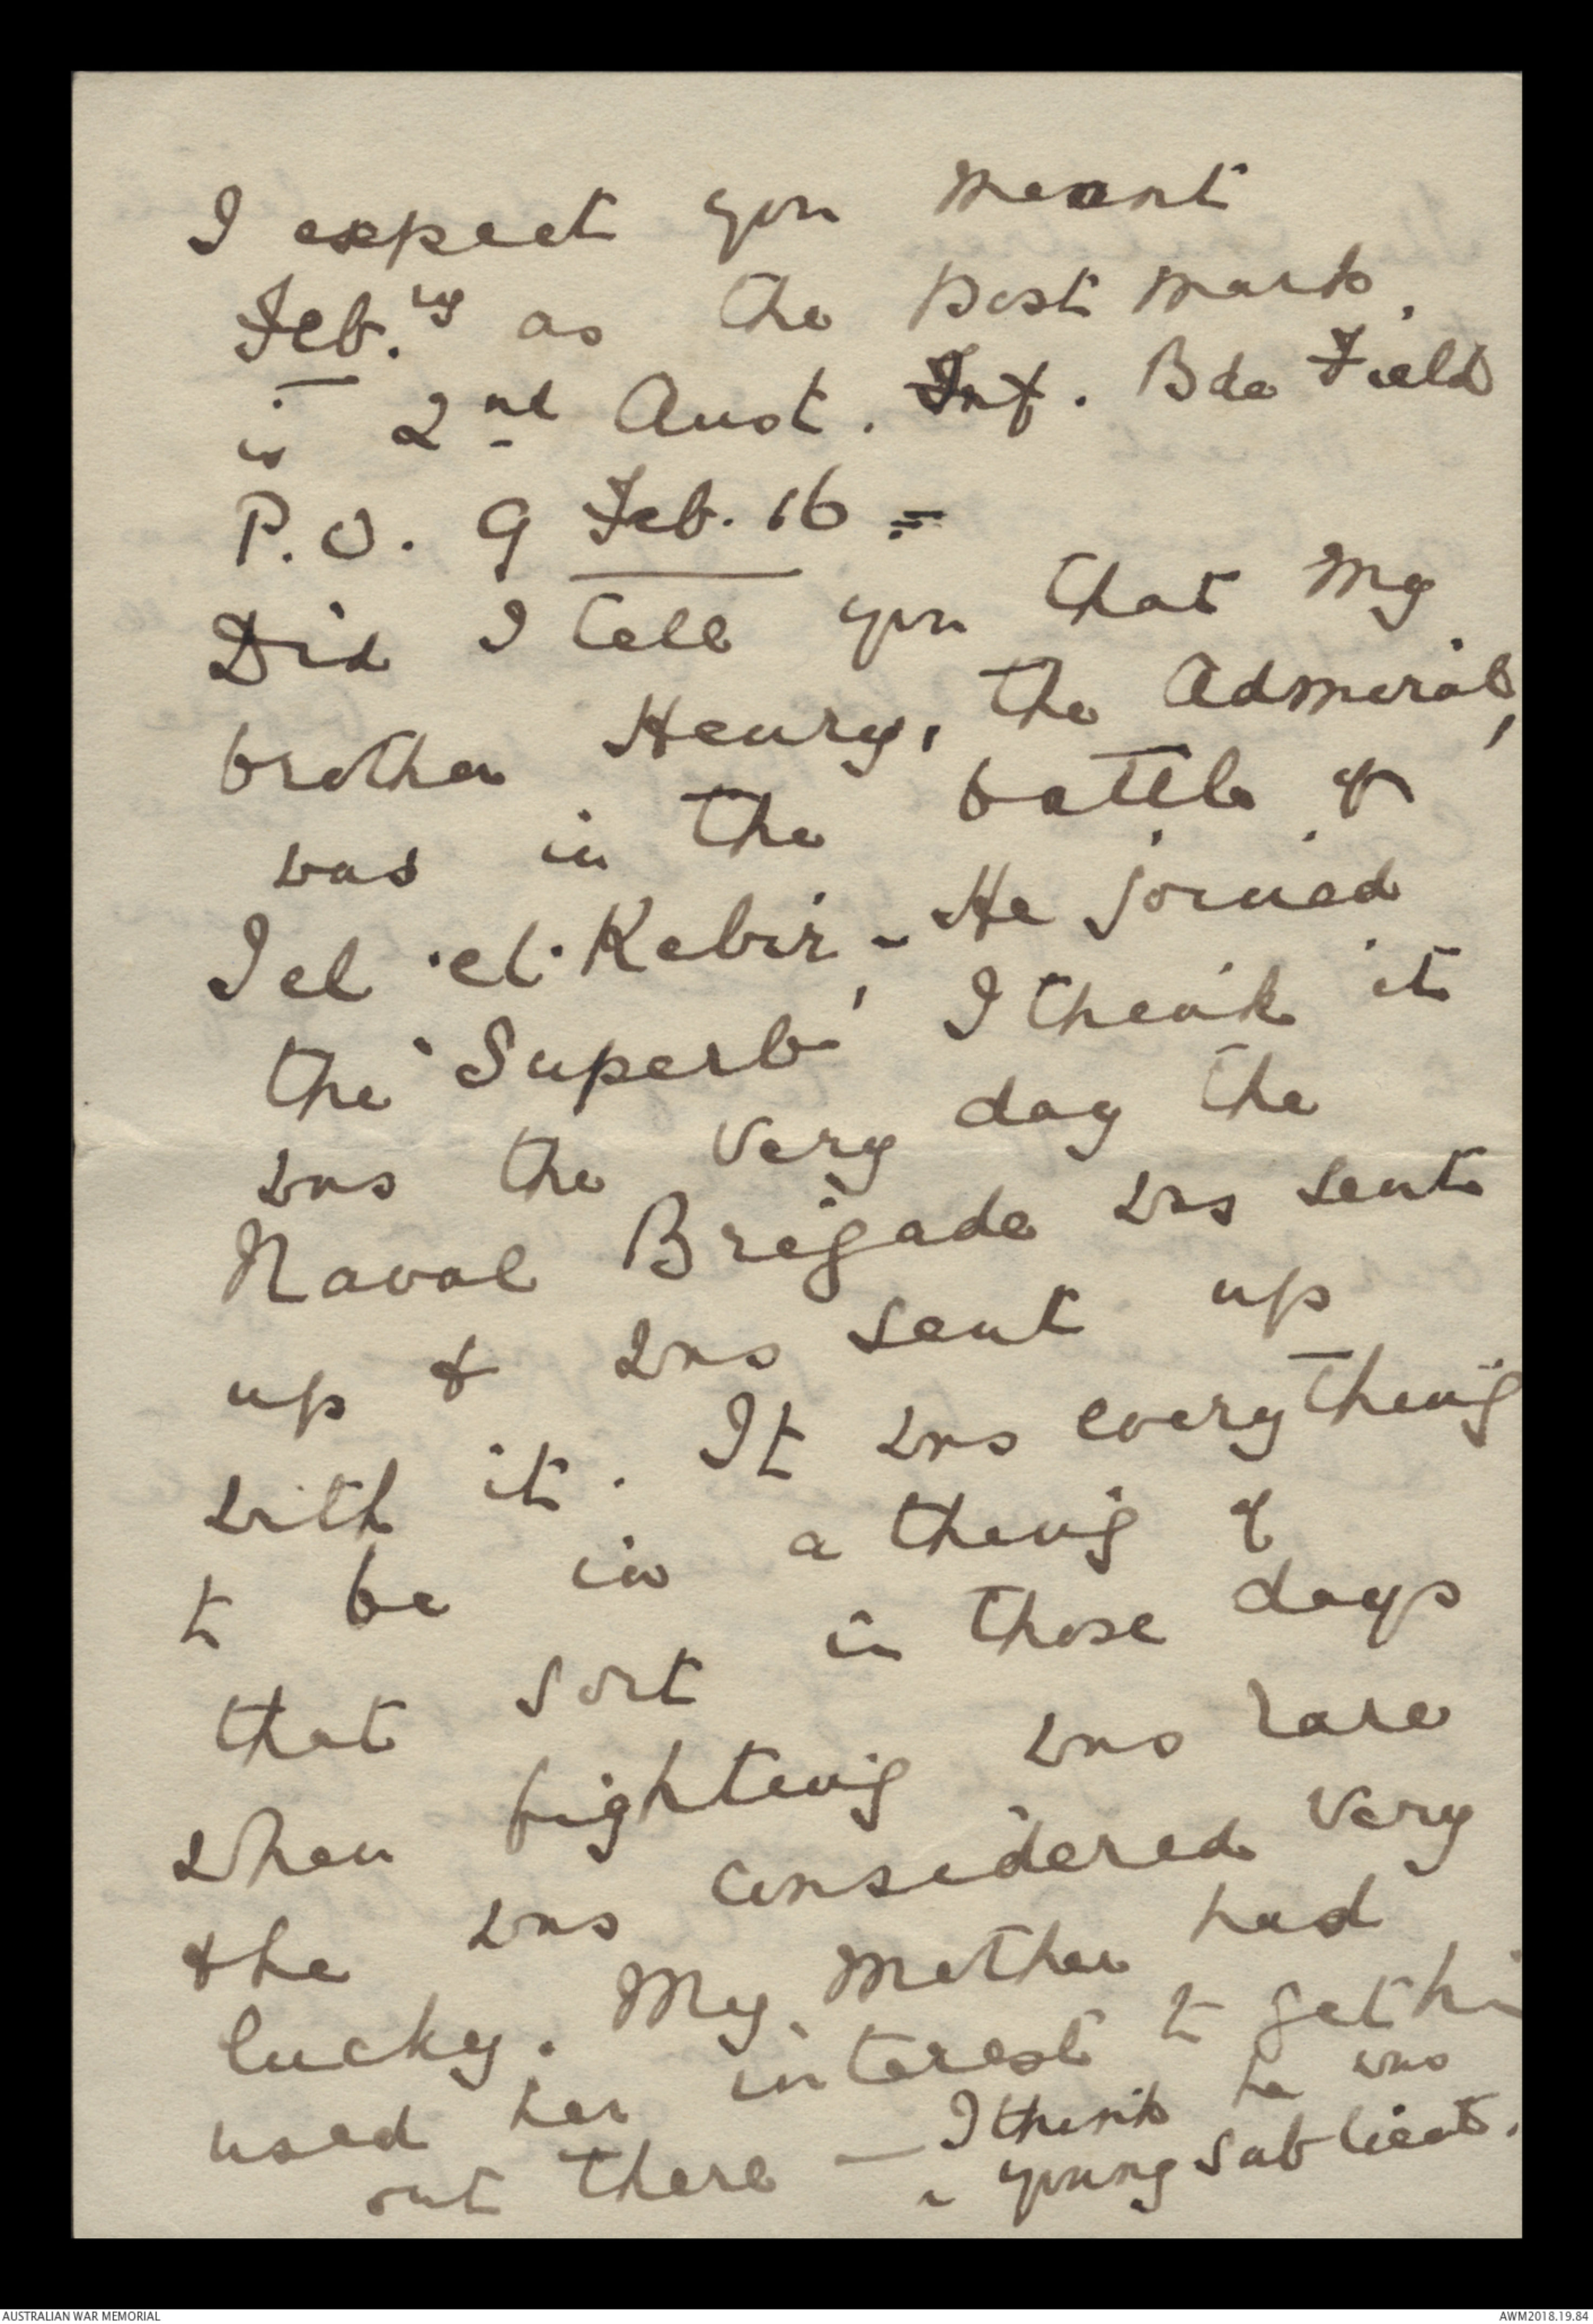 I expect you meant
Feb.ry as the Post mark.
is 2nd Aust. Inf. Bde Field
P.O. 9 Feb. 16 =
Did I tell you that my
brother Henry, the Admiral,
was in the battle of
Tel-el-Kebir - He joined
the 'Superb' I think it
was the very day the
Naval Brigade was sent
up & was sent up
with it. It was everything
to be in a thing of
that sort in those days
when fighting was rare
& he was considered very
lucky. My Mother had
used her interest to get hi
out there — I think he was
a young sub lieut.
AUSTRALIAN WAR MEMORIAL
AWM2018.19.84